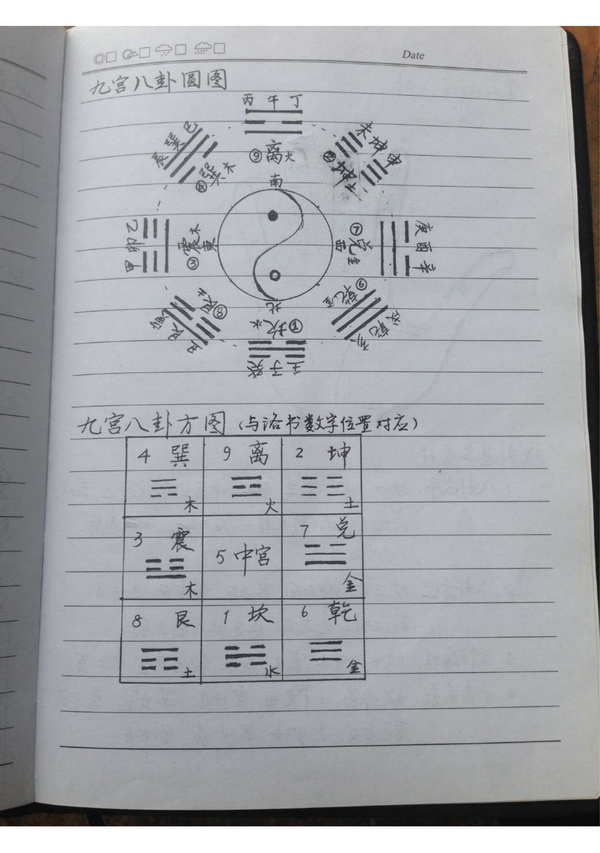 Date
九宫八卦圆图
丙 午 丁
辰 巽 巳
④ 巽木
⑨ 离火
未 坤 申
② 坤土
南
甲 卯 乙
③ 震木
東
西
⑦ 兑金
庚 酉 辛
北
⑧ 艮土
艮
① 坎水
⑥ 乾金
乾
壬子癸
九宫八卦方图(与洛书数字位置对应)
4 巽 9 离 2 坤
木 火 土
3 震 5 中宫 7 兑
木 金
8 艮 1 坎 6 乾
土 水 金